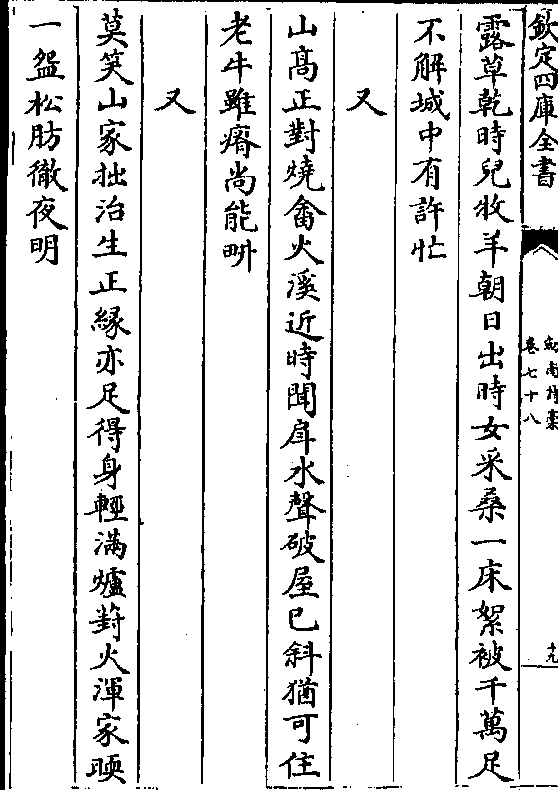 欽定四庫全書
劍南詩稾
卷七十八
十九
露草乾時兒牧羊朝日出時女采桑一床絮被千萬足
不解城中有許忙
又
山高正對燒畬火溪近時聞戽水聲破屋已斜猶可住
老牛雖瘠尚能畊
又
莫笑山家拙治生正緣亦足得身輕滿爐蔚火渾家暖
一盌松肪徹夜明